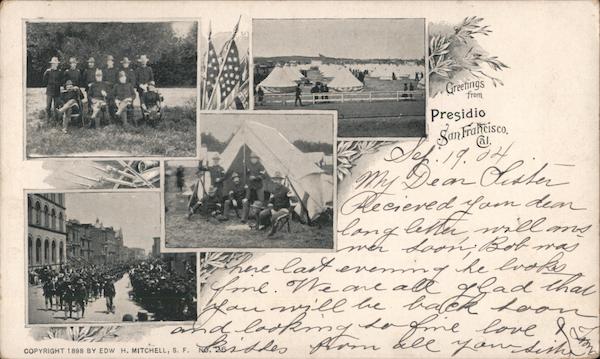 Greetings
from
Presidio
San Francisco,
Cal.
Sep. 19. 04
My Dear Sister
Recieved your dear
long letter will ans
wer soon, Bob was
here last evening he looks
fine. We are all glad that
you will be back soon
and looking so fine love &
kisses from all your sis
COPYRIGHT 1898 BY EDW. H. MITCHELL, S. F. NO. 26